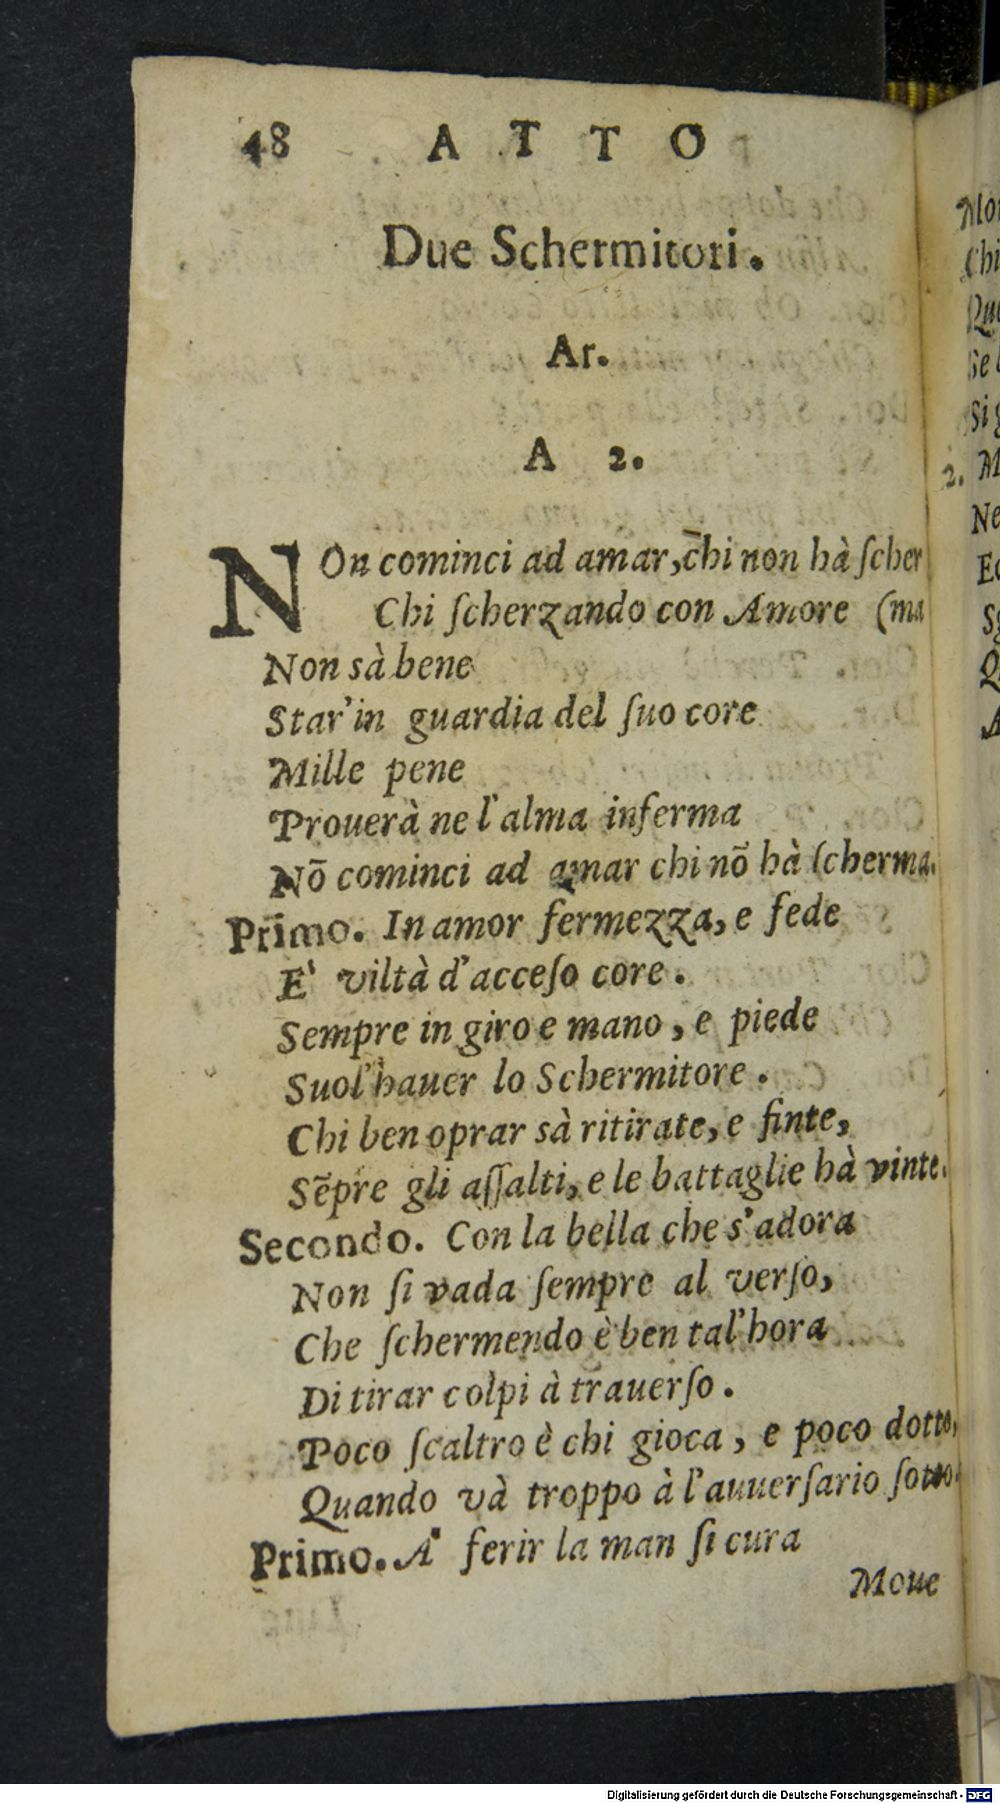 48 ATTO
Due Schermitori.
Ar.
A 2.
NOn cominci ad amar, c̄hi non hà ſcher
Chi ſcherzando con Amore (ma
Non sà bene
Star'in guardia del ſuo core
Mille pene
Prouerà ne l'alma inferma
Nō cominci ad amar chi nō hà ſcherma.
Primo. In amor fermezza, e fede
E' viltà d'acceſo core.
Sempre in giro e mano, e piede
Suol'hauer lo Schermitore.
Chi ben oprar sà ritirate, e finte,
Sēpre gli aſſalti, e le battaglie hà vinte.
Secondo. Con la bella che s'adora
Non ſi vada ſempre al verſo,
Che ſchermendo è ben tal'hora
Di tirar colpi à trauerſo.
Poco ſcaltro è chi gioca, e poco dotto,
Quando và troppo à l'auuerſario ſotto.
Primo. A' ferir la man ſi cura
Moue
Mo
Chi
Qu
Se
Si
2. M
Ne
Q
A
Digitalisierung gefördert durch die Deutsche Forschungsgemeinschaft - DFG